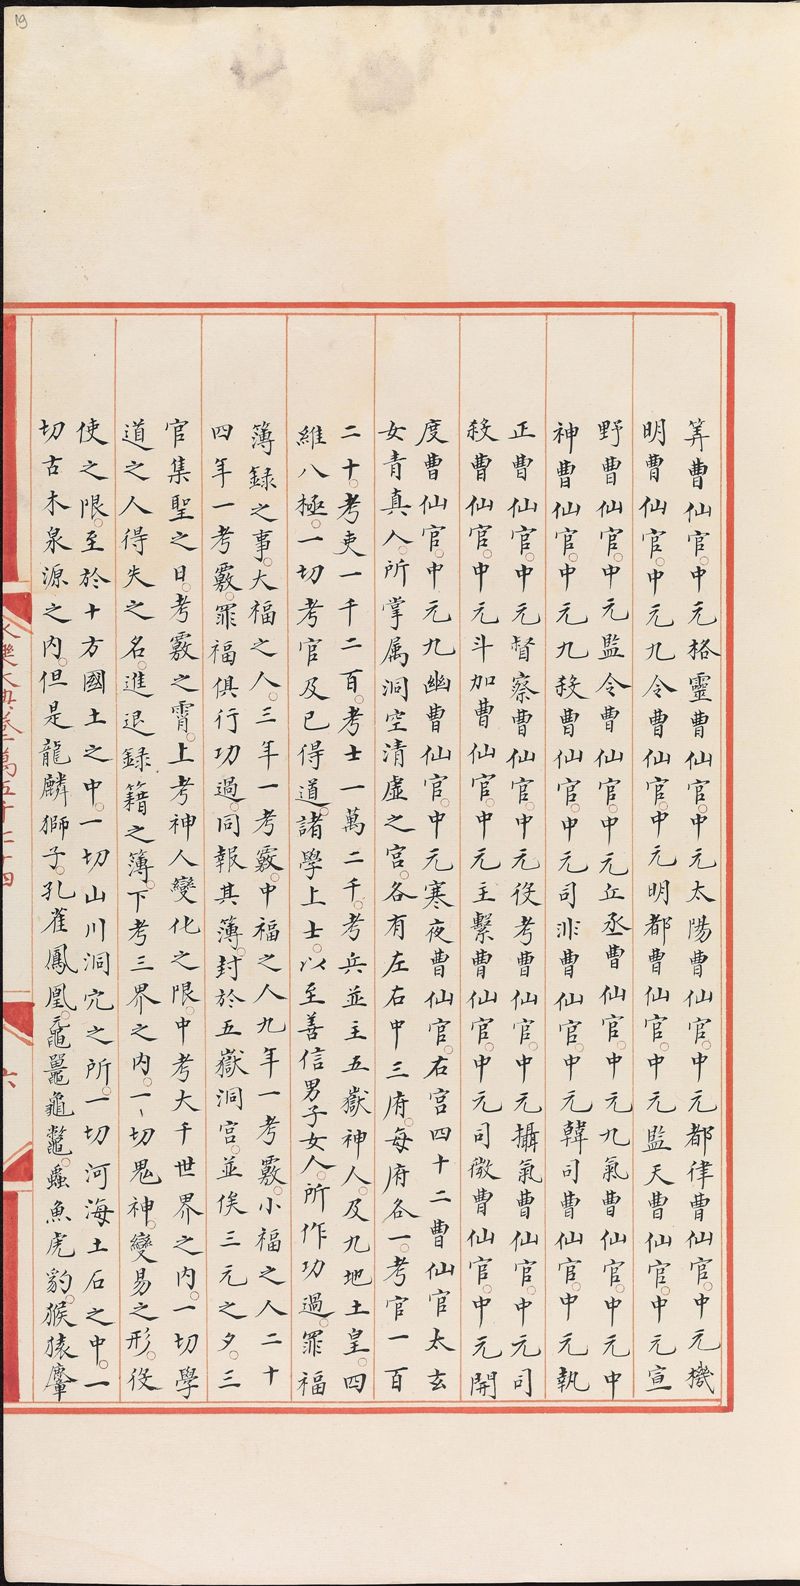 筭曹仙官中元格靈曹仙官中元太陽曹仙官中元都律曹仙官中元機
明曹仙官中元九令曹仙官中元明都曹仙官中元監天曹仙官中元宣
野曹仙官中元監令曹仙官中元丘丞曹仙官中元九氣曹仙官中元中
神曹仙官中元九殺曹仙官中元司非曹仙官中元韓司曹仙官中元執
正曹仙官中元督察曹仙官中元役考曹仙官中元攝氣曹仙官中元司
殺曹仙官中元斗加曹仙官中元主繫曹仙官中元司徼曹仙官中元開
度曹仙官中元九幽曹仙官中元寒夜曹仙官右宮四十二曹仙官太玄
女青真人所掌属洞空清虛之宮各有左右中三府每府各一考官一百
二十考吏一千二百考士一萬二千考兵並主五嶽神人及九地土皇四
維八極一切考官及已得道諸學上士以至善信男子女人所作功過罪福
簿録之事大福之人三年一考覈中福之人九年一考覈小福之人二十
四年一考覈罪福俱行功過同報其簿封於五嶽洞宮並俟三元之夕三
官集聖之日考覈之霄上考神人變化之限中考大千世界之内一切學
道之人得失之名進退録籍之簿下考三界之内一切鬼神變易之形役
使之限至於十方國土之中一切山川洞宂之所一切河海土石之中一
切古木泉源之内但是龍麟獅子孔雀鳳凰黿鼉龜鼈䖝魚虎豹猴猿麞
六
19